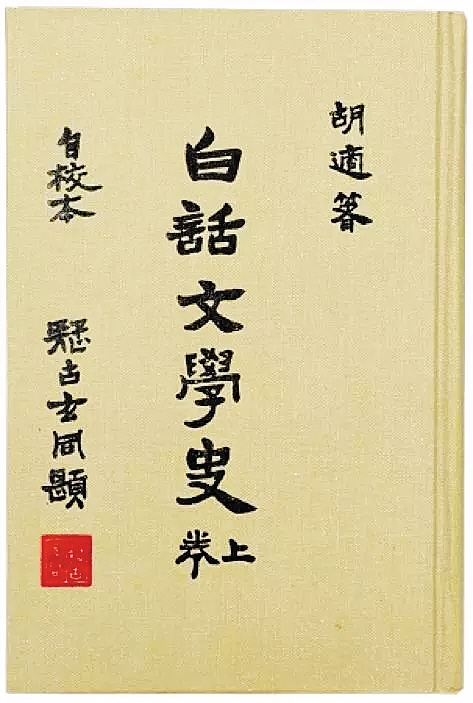 胡適箸
白話文學史
上卷
自校本
疑古玄同題